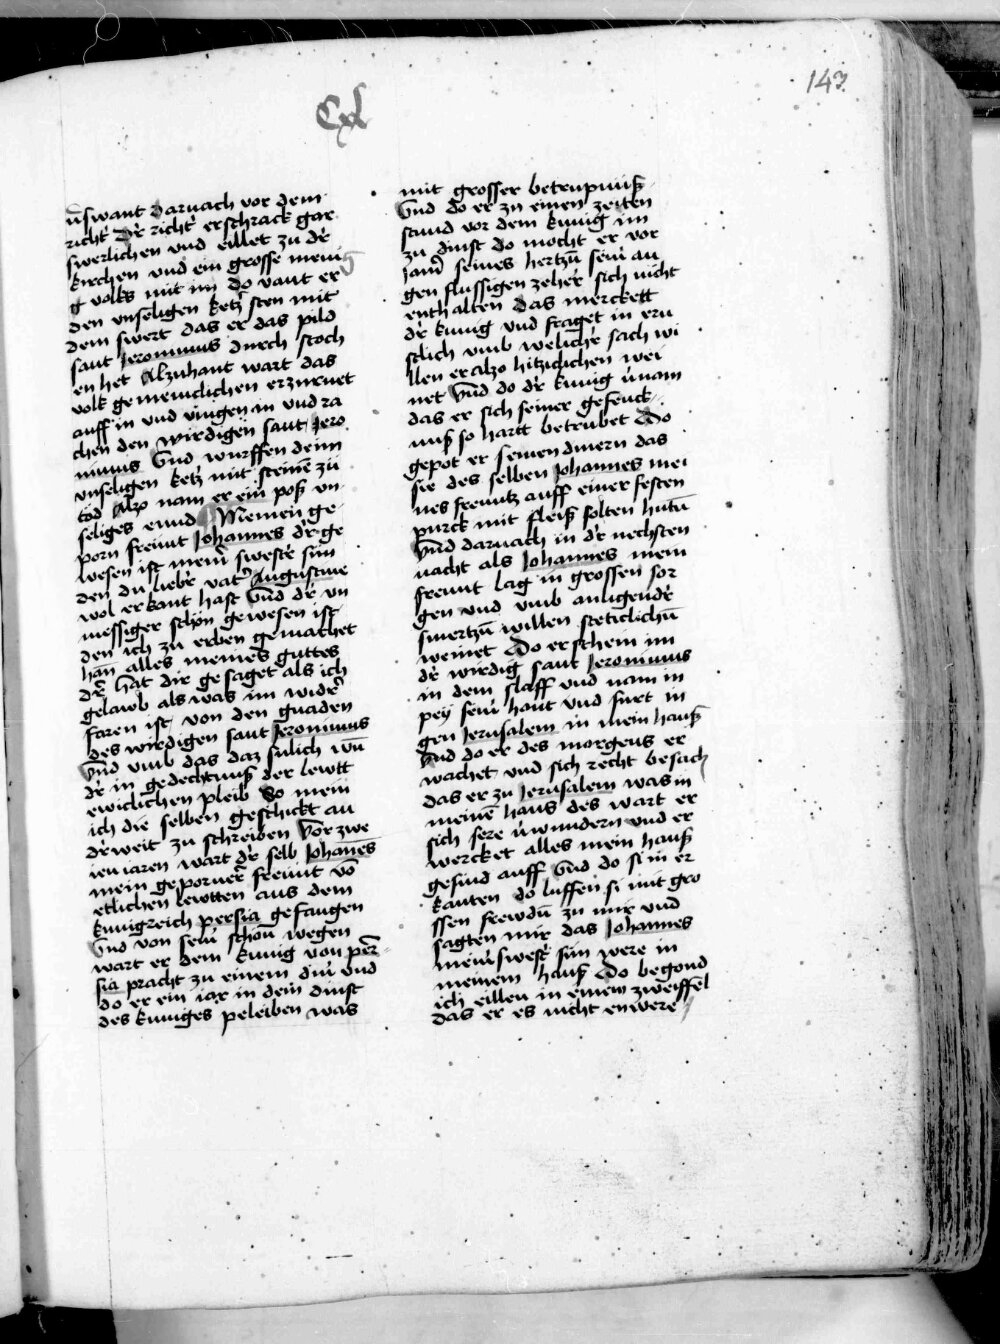 147
Cxl
v̄swant darnach vor dem
richt̓ Dē richt̓ erschrack gar
swerlichen vnd eillet zu d̓r
kirchen vnd ein grosse meni
g volks mit im do vant er
den vnseligen ketz̓ sten mit
dem swert das er das pild
sant Jeronimus durch stoch
en het Alzuhant wart das
volk gemeinclichen erzurnet
auff in vnd vingen in vnd ra
chen den wirdigen sant Jero
nimus Vnd wurffen denn
vnseligen ketz̓ mit steinē zu
tod Also nam er ein poß vn
seliges ennd Meinen ge
porn freunt Johannes d̓r ge
wesen ist mein̓ swest̓r sun
den du lieb̓r vat̓ Augustine
wol erkant hast Vnd d̓r vn
messiger schön gewesen ist
den ich zu erben gemachet
han alles meines guttes
d̓r hat dir gesaget als ich
gelawb als was im wid̓r
faren ist von den gnaden
des wirdigen sant Jeronimus
Vnd vmb das daz sulich wū
d̓r in gedechtnuß der lewtt
ewiclichen pleib So mein
ich die selben geschickt an
d̓rweit zu schreiben Vor zwe
ien iaren wart d̓r selb Johanēs
mein geporner freunt vō
etlichen lewtten aus dem
kunigreich persia gefangen
Vnd von sein̓ schön wegen
wart er dem kunig von per
sia pracht zu einem din̓ vnd
do er ein iar in dem dinst
des kuniges peleiben was
mit grosser betrupnuß
Vnd do er zu einen zeiten
stand vor dem kunig im
zu dinst do mocht er vor
jam̓ seines hertzū sein̓ au
gen flussigen zeher sich nicht
enthalten das merckett
d̓r kunig vnd fraget in ern
stlich vmb welich̓r sach wi
llen er alzo hitziclichen wei
net Vnd do d̓r kunig v̓nam
das er sich seiner gefenck
nuß so hartt betrubet Do
gepot er seinen dinern das
sie des selben Johannes mei
nes freuntz auff einer festen
purck mit fleiß solten hutn̄
Vnd darnach in d̓r nechsten
nacht als Johannes mein
freunt lag in grossen sor
gen vnd vmb anligend̓r
smertzū willen steticlichū
weinet Do erschein im
d̓r wirdig sant Jeronimus
in dem slaff vnd nam in
pey sein̓ hant vnd furt in
gen Jerusalem in mein hauß
Vnd do er des morgens er
wachet vnd sich recht besach
das er zu Jerusalem was in
meinē haus des wart er
sich sere v̓wundern vnd er
wercket alles mein hauß
gesind auff Vnd do si in er
kanten do luffen si mit gro
ssen frewdū zu mir vnd
sagten mir das Johannes
mein̓ swest̓ sun were in
meinem hauß Do begond
ich eillen in einem zweiffel
das er es nicht enwere